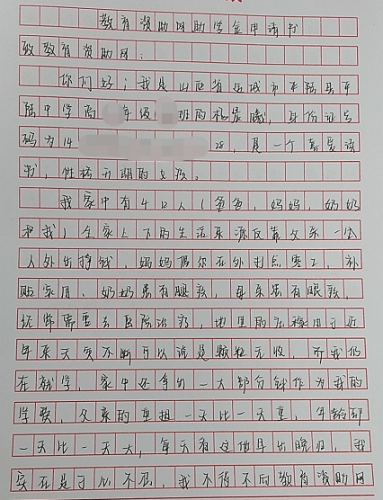 教育资助网助学金申请书
致教育资助网：
你们好！我是山西省运城市平陆县平
陆中学的 年级 班的 ，身份证号
码为14 28，是一个喜爱读
书，性格开朗的女孩。
我家中有4口人（爸爸，妈妈，奶奶
和我）全家上下的生活来源仅靠父亲一个
人外出挣钱，妈妈偶尔在外打点零工，补
贴家用。奶奶患有腿疾，母亲患有眼疾，
经常需要去医院治疗，地里的庄稼由于近
年来天灾不断可以说是颗粒无收，而我仍
在就学，家中还拿出一大部分钱作为我的
学费，父亲的重担一天比一天重，年龄却
一天比一天大，每天看这他早出晚归，我
实在是于心不忍，我不得不向教育资助网